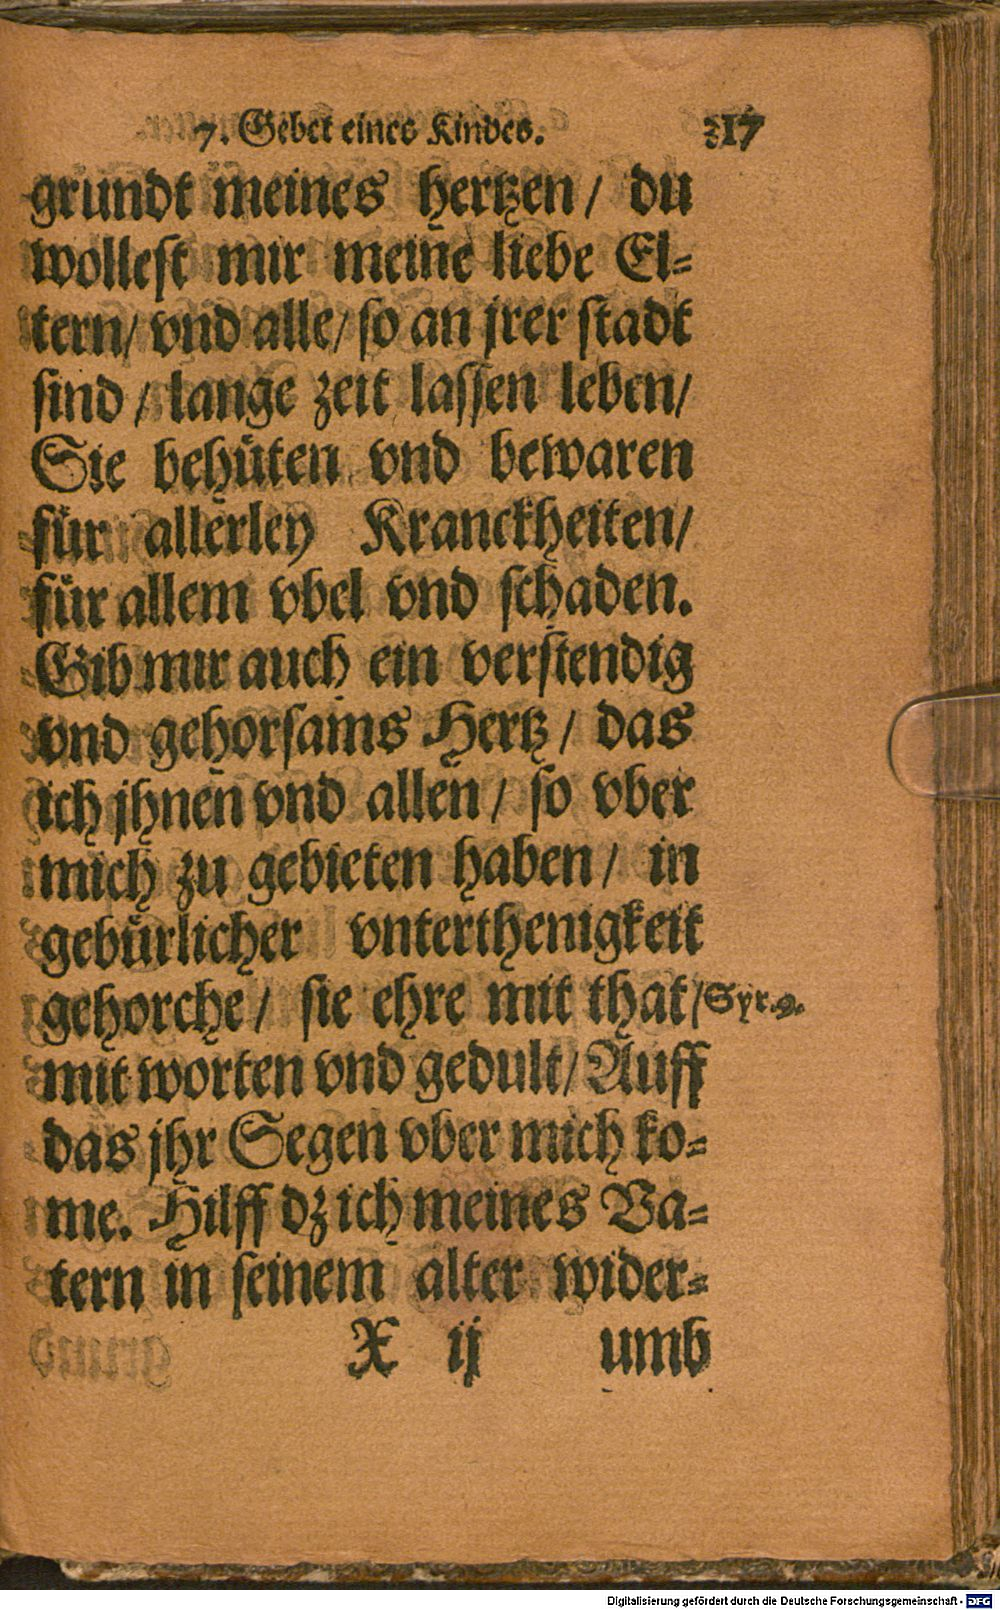 7. Gebet eines Kindes. 317
grundt meines hertzen / du
wollest mir meine liebe El=
tern / vnd alle / so an jrer stadt
sind / lange zeit lassen leben /
Sie behüten vnd bewaren
für allerley Kranckheiten /
für allem vbel vnd schaden.
Gib mir auch ein verstendig
vnd gehorsams Hertz / das
ich jhnen vnd allen / so vber
mich zu gebieten haben / in
gebürlicher vnterthenigkeit
gehorche / sie ehre mit that / Syr. 9.
mit worten vnd gedult / Auff
das jhr Segen vber mich ko=
me. Hilff dz ich meines Va=
tern in seinem alter wider=
X ij umb
Digitalisierung gefördert durch die Deutsche Forschungsgemeinschaft - DFG